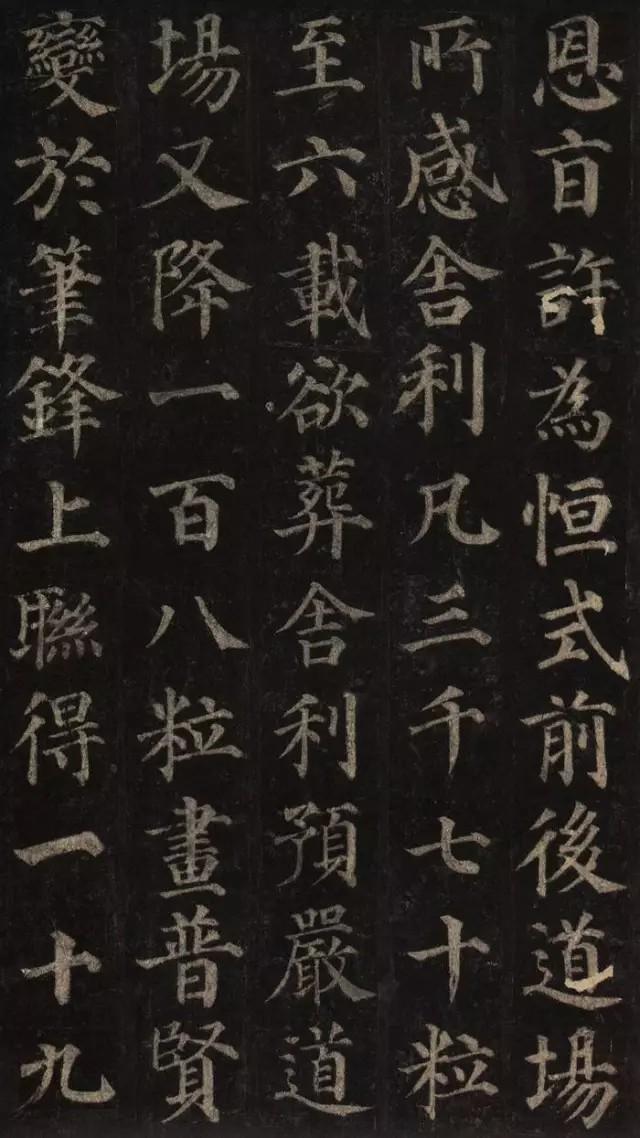 恩㫖許為恒式前後道場
所感舍利凡三千七十粒
至六載欲葬舍利預嚴道
場又降一百八粒畫普賢
變於筆鋒上聯得一十九